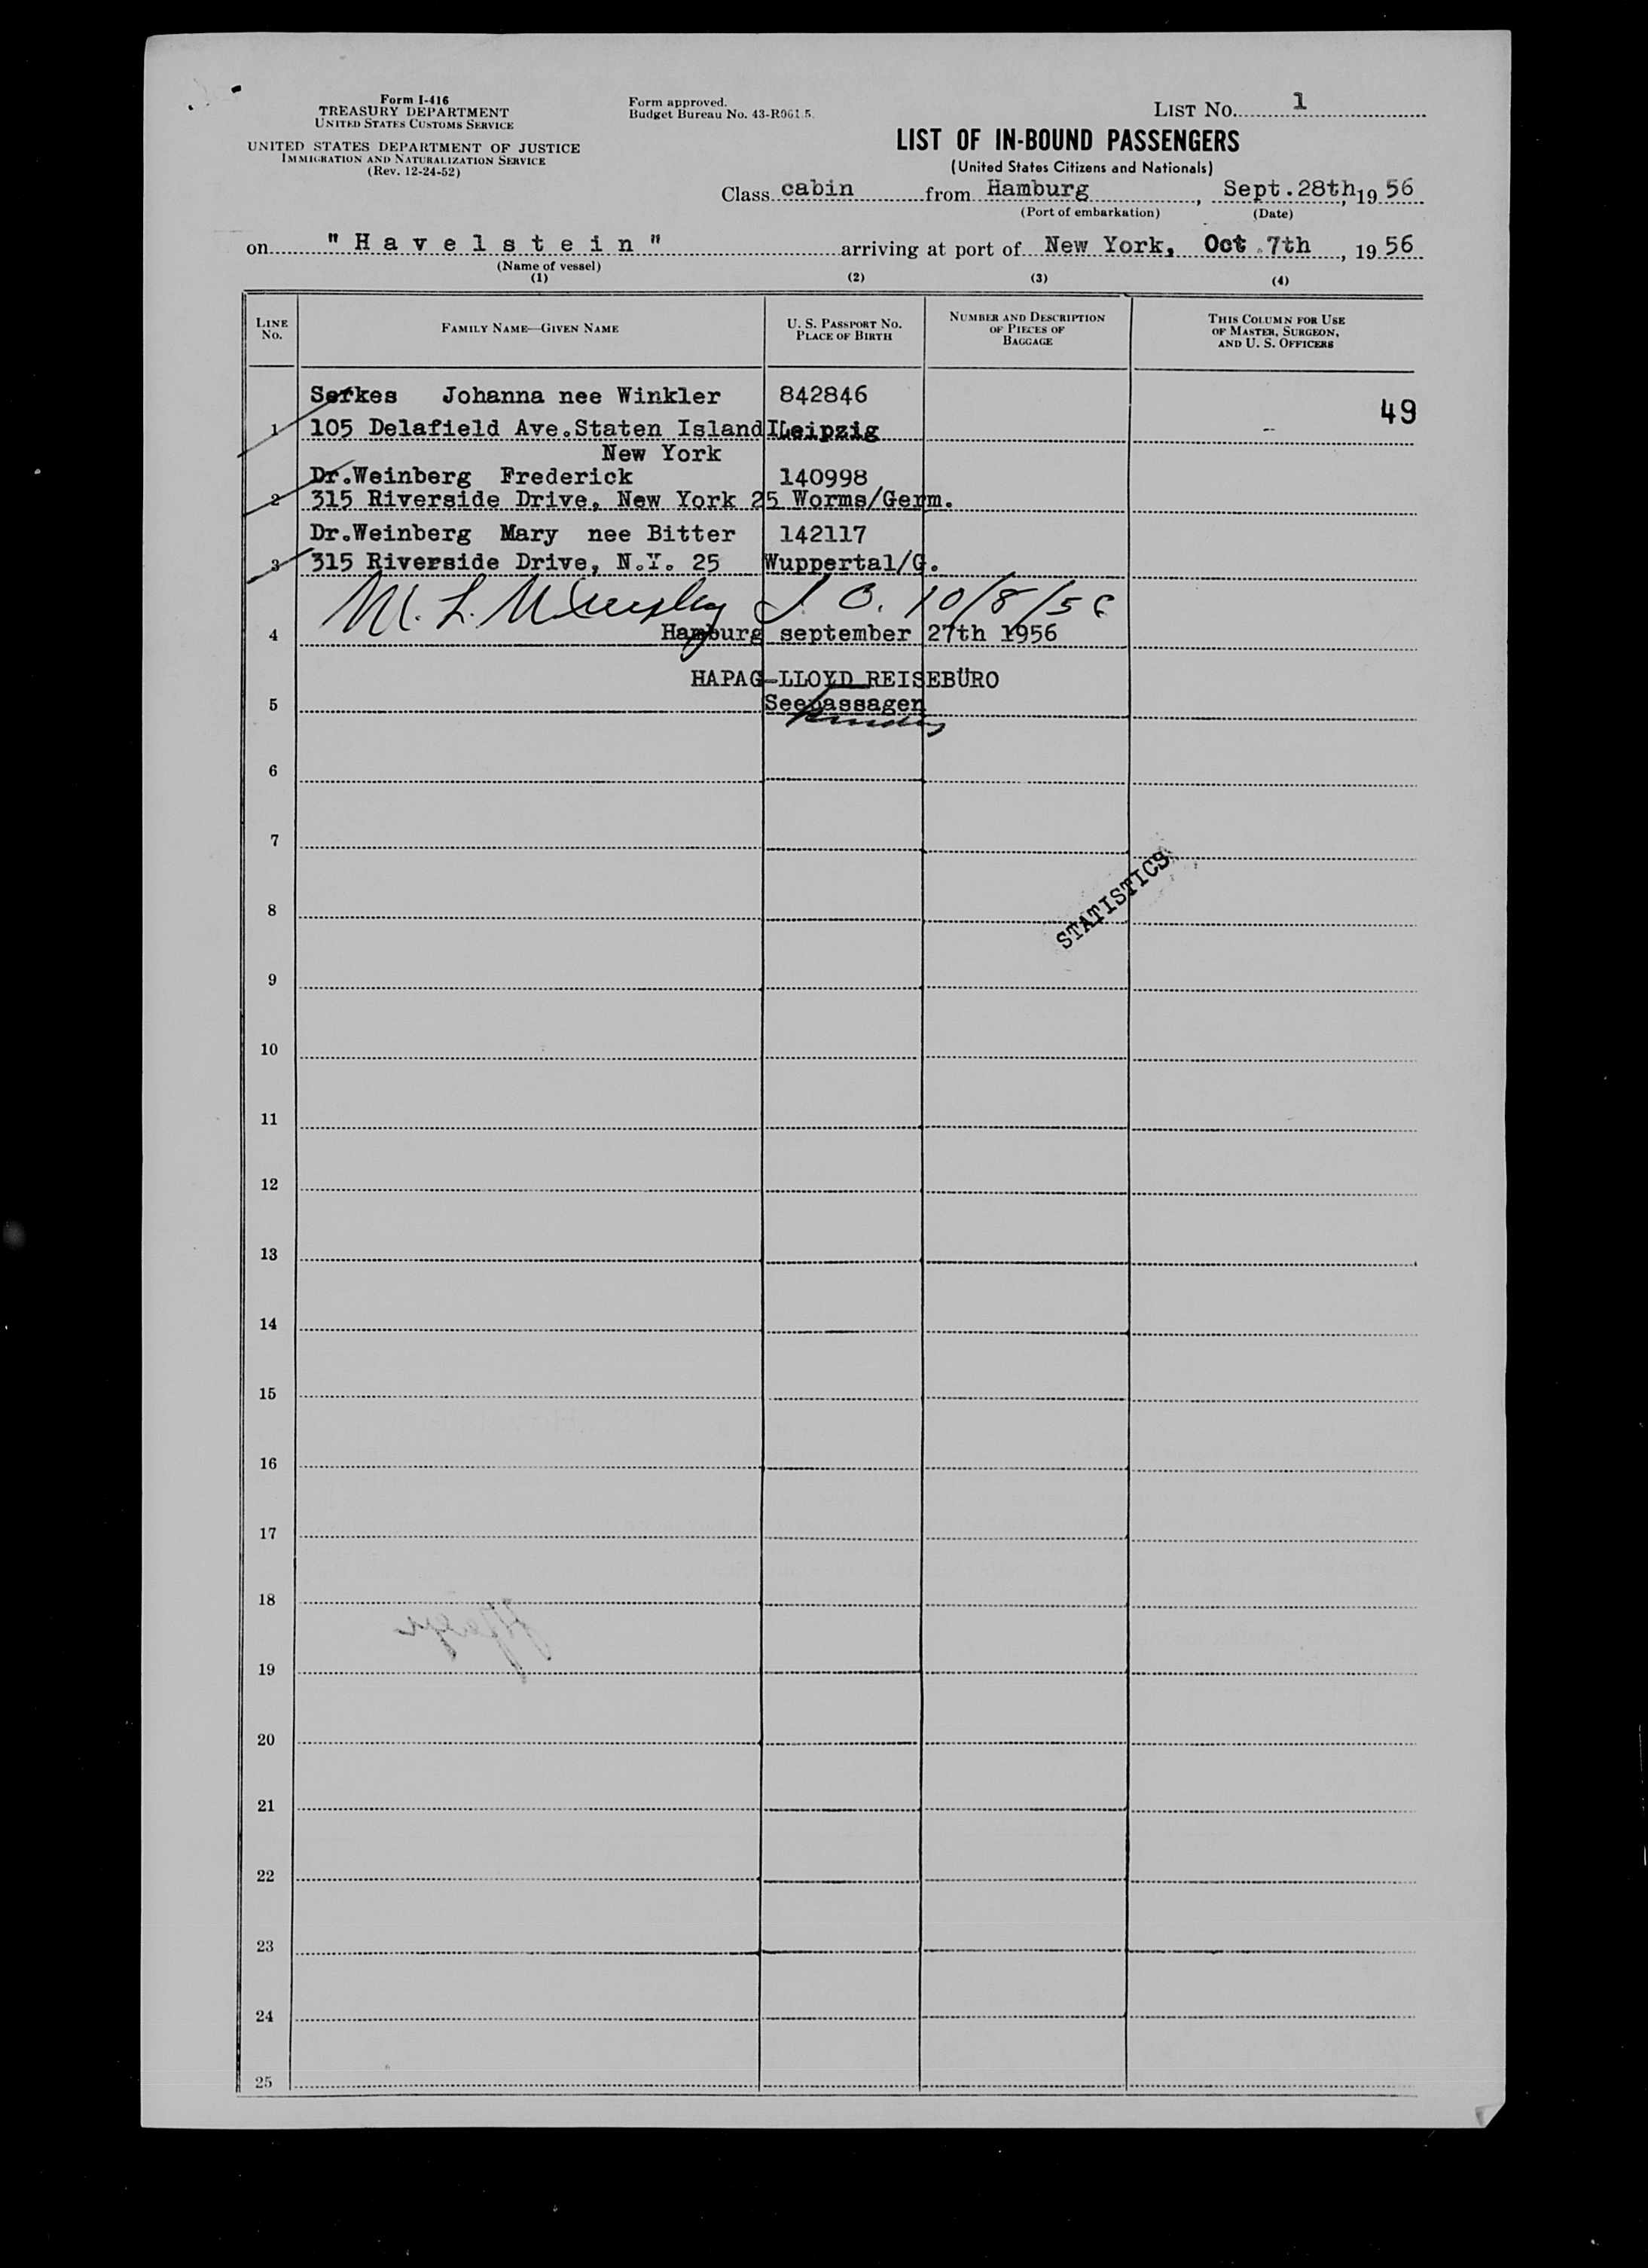 Form I-416
TREASURY DEPARTMENT
UNITED STATES CUSTOMS SERVICE
UNITED STATES DEPARTMENT OF JUSTICE
IMMIGRATION AND NATURALIZATION SERVICE
(Rev. 12-24-52)
Form approved.
Budget Bureau No. 43-R061.5.
LIST No. 1
LIST OF IN-BOUND PASSENGERS
(United States Citizens and Nationals)
Class cabin from Hamburg, Sept.28th, 19 56
(Port of embarkation) (Date)
on "Havelstein" arriving at port of New York, Oct.7th, 19 56
(Name of vessel)
(1) (2) (3) (4)
LINE No. FAMILY NAME—GIVEN NAME U. S. PASSPORT NO. PLACE OF BIRTH NUMBER AND DESCRIPTION OF PIECES OF BAGGAGE THIS COLUMN FOR USE OF MASTER, SURGEON, AND U. S. OFFICERS
Serkes Johanna nee Winkler 842846
49
1 105 Delafield Ave.Staten Island Leipzig
New York
Dr.Weinberg Frederick 140998
2 315 Riverside Drive, New York 25 Worms/Germ.
Dr.Weinberg Mary nee Bitter 142117
3 315 Riverside Drive, N.Y. 25 Wuppertal/G.
M. L. 10/8/56
4 Hamburg september 27th 1956
HAPAG-LLOYD REISEBÜRO
5 Seepassagen
6
7
STATISTICS
8
9
10
11
12
13
14
15
16
17
18
19
20
21
22
23
24
25